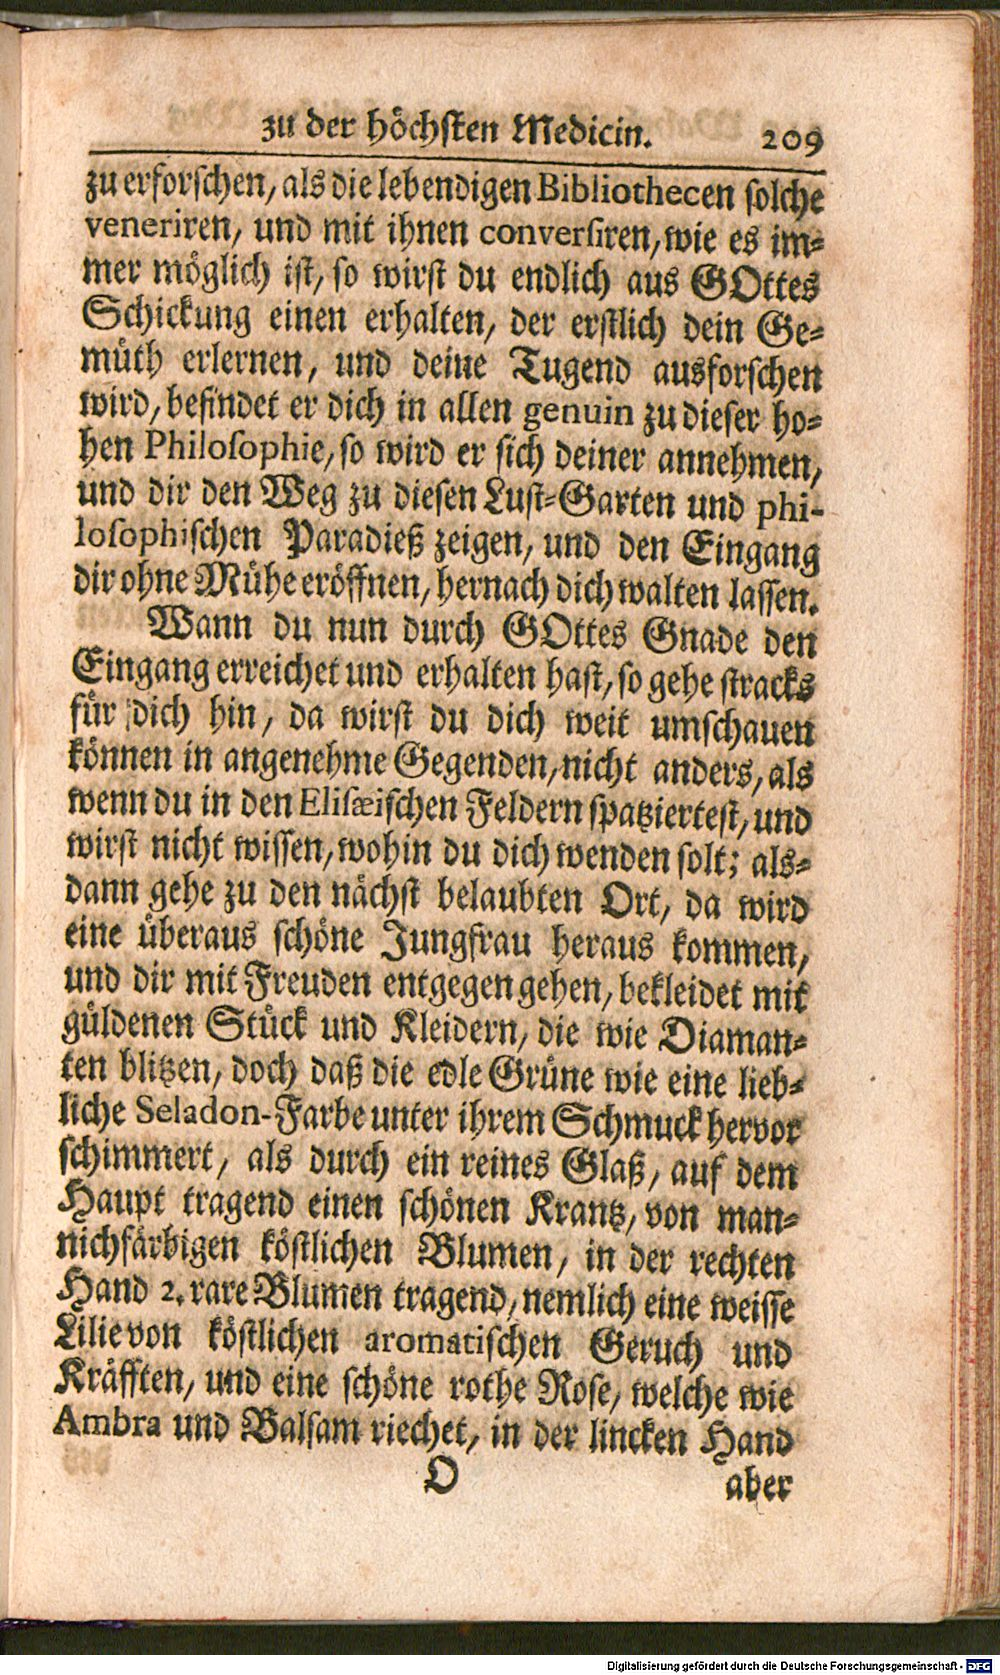 zu der höchsten Medicin. 209
zu erforschen, als die lebendigen Bibliothecen solche
veneriren, und mit ihnen conversiren, wie es im-
mer möglich ist, so wirst du endlich aus GOttes
Schickung einen erhalten, der erstlich dein Ge-
müth erlernen, und deine Tugend ausforschen
wird, befindet er dich in allen genuin zu dieser ho-
hen Philosophie, so wird er sich deiner annehmen,
und dir den Weg zu diesen Lust-Garten und phi-
losophischen Paradieß zeigen, und den Eingang
dir ohne Mühe eröffnen, hernach dich walten lassen.
Wann du nun durch GOttes Gnade den
Eingang erreichet und erhalten hast, so gehe stracks
für dich hin, da wirst du dich weit umschauen
können in angenehme Gegenden, nicht anders, als
wenn du in den Elisæischen Feldern spatziertest, und
wirst nicht wissen, wohin du dich wenden solt; als-
dann gehe zu den nächst belaubten Ort, da wird
eine überaus schöne Jungfrau heraus kommen,
und dir mit Freuden entgegen gehen, bekleidet mit
güldenen Stück und Kleidern, die wie Diaman-
ten blitzen, doch daß die edle Grüne wie eine lieb-
liche Seladon-Farbe unter ihrem Schmuck hervor
schimmert, als durch ein reines Glaß, auf dem
Haupt tragend einen schönen Krantz, von man-
nichfärbigen köstlichen Blumen, in der rechten
Hand 2. rare Blumen tragend, nemlich eine weisse
Lilie von köstlichen aromatischen Geruch und
Kräfften, und eine schöne rothe Rose, welche wie
Ambra und Balsam riechet, in der lincken Hand
O aber
Digitalisierung gefördert durch die Deutsche Forschungsgemeinschaft - DFG